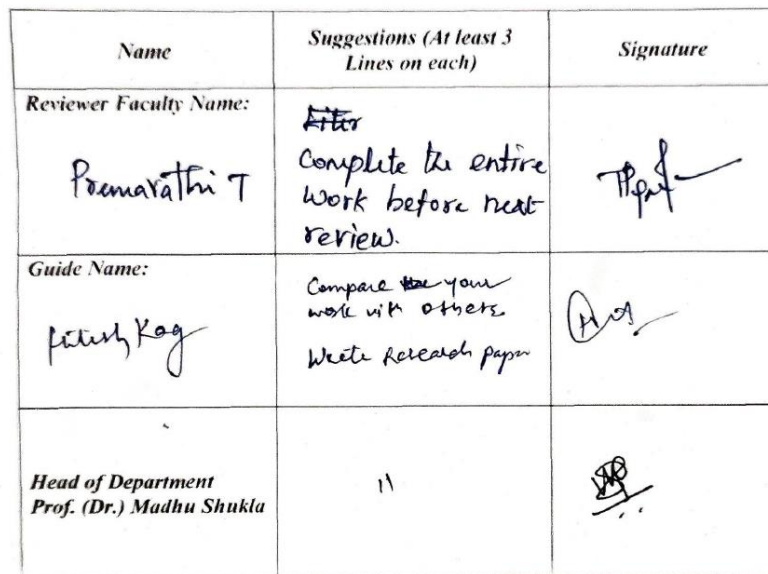 Name
Suggestions (At least 3
Lines on each)
Signature
Reviewer Faculty Name:
Premavathi T
Complete the entire
work before next
review.
Guide Name:
Compare your
work with others
Write Research paper
Head of Department
Prof. (Dr.) Madhu Shukla
11